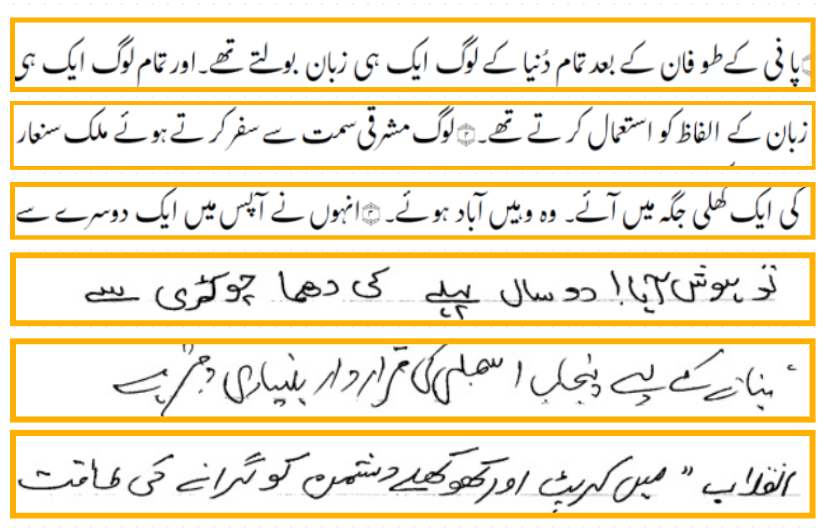 پانی کے طوفان کے بعد تمام دُنیا کے لوگ ایک ہی زبان بولتے تھے۔ اور تمام لوگ ایک ہی
زبان کے الفاظ کو استعمال کر تے تھے۔ ۲ لوگ مشرقی سمت سے سفر کر تے ہوئے ملک سنعار
کی ایک کھلی جگہ میں آئے۔ وہ وہیں آباد ہوئے۔ ۳ انہوں نے آپس میں ایک دوسرے سے
تو ہوش آیا! دو سال پہلے کی دھما چوکڑی سے
بنانے کے لیے پنجاب اسمبلی کی قرارداد بنیادی وجہ ہے
انقلاب " میں کرپٹ اور کھوکھلے دشمن کو گرانے کی طاقت